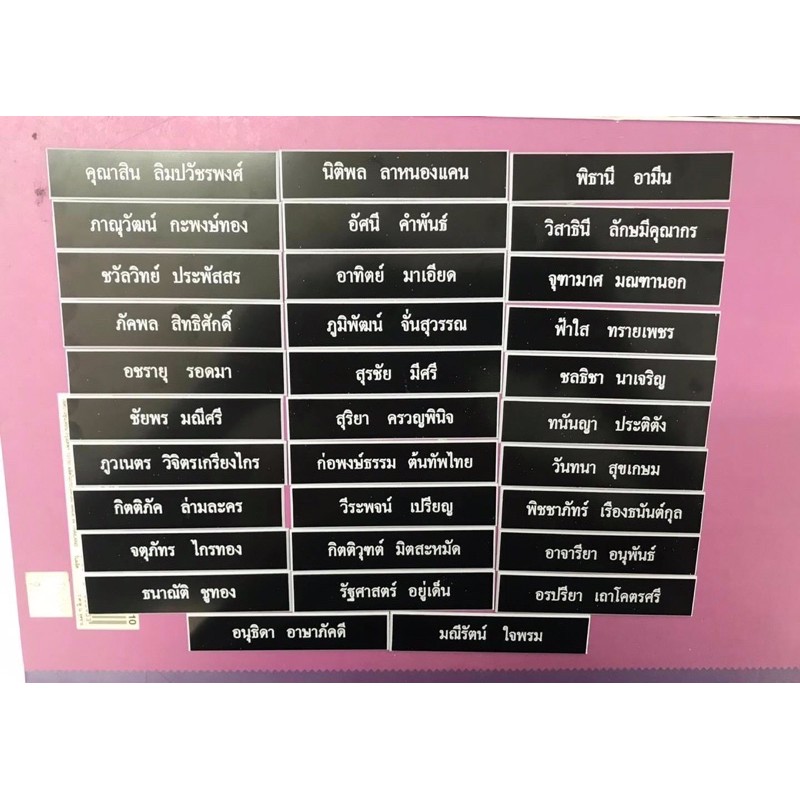 คุณาสิน ลิมปวัชรพงศ์
นิติพล ลาหนองแคน
พิธานี อามีน
ภาณุวัฒน์ กะพงษ์ทอง
อัศนี คำพันธ์
วิสาธินี ลักษมีคุณากร
ชวัลวิทย์ ประพัสสร
อาทิตย์ มาเอียด
จุฑามาศ มณฑานอก
ภัคพล สิทธิศักดิ์
ภูมิพัฒน์ จั่นสุวรรณ
ฟ้าใส ทรายเพชร
อชรายุ รอดมา
สุรชัย มีศรี
ชลธิชา นาเจริญ
ชัยพร มณีศรี
สุริยา ครวญพินิจ
ทนันญา ประติตัง
ภูวเนตร วิจิตรเกรียงไกร
ก่อพงษ์ธรรม ต้นทัพไทย
วันทนา สุขเกษม
กิตติภัค ล่ามละคร
วีระพจน์ เปรียญ
พิชชาภัทร์ เรืองธนันต์กุล
จตุภัทร ไกรทอง
กิตติวุฑต์ มิตสะหมัด
อาจารียา อนุพันธ์
ธนาณัติ ชูทอง
รัฐศาสตร์ อยู่เด็น
อรปรียา เถาโคตรศรี
อนุธิดา อาษาภัคดี
มณีรัตน์ ใจพรม